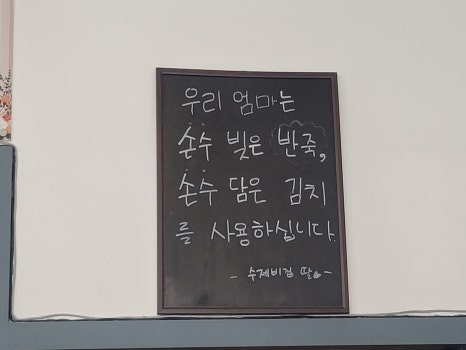 우리 엄마는
손수 빚은 반죽,
손수 담은 김치
를 사용하십니다.
- 수제비집 딸 -